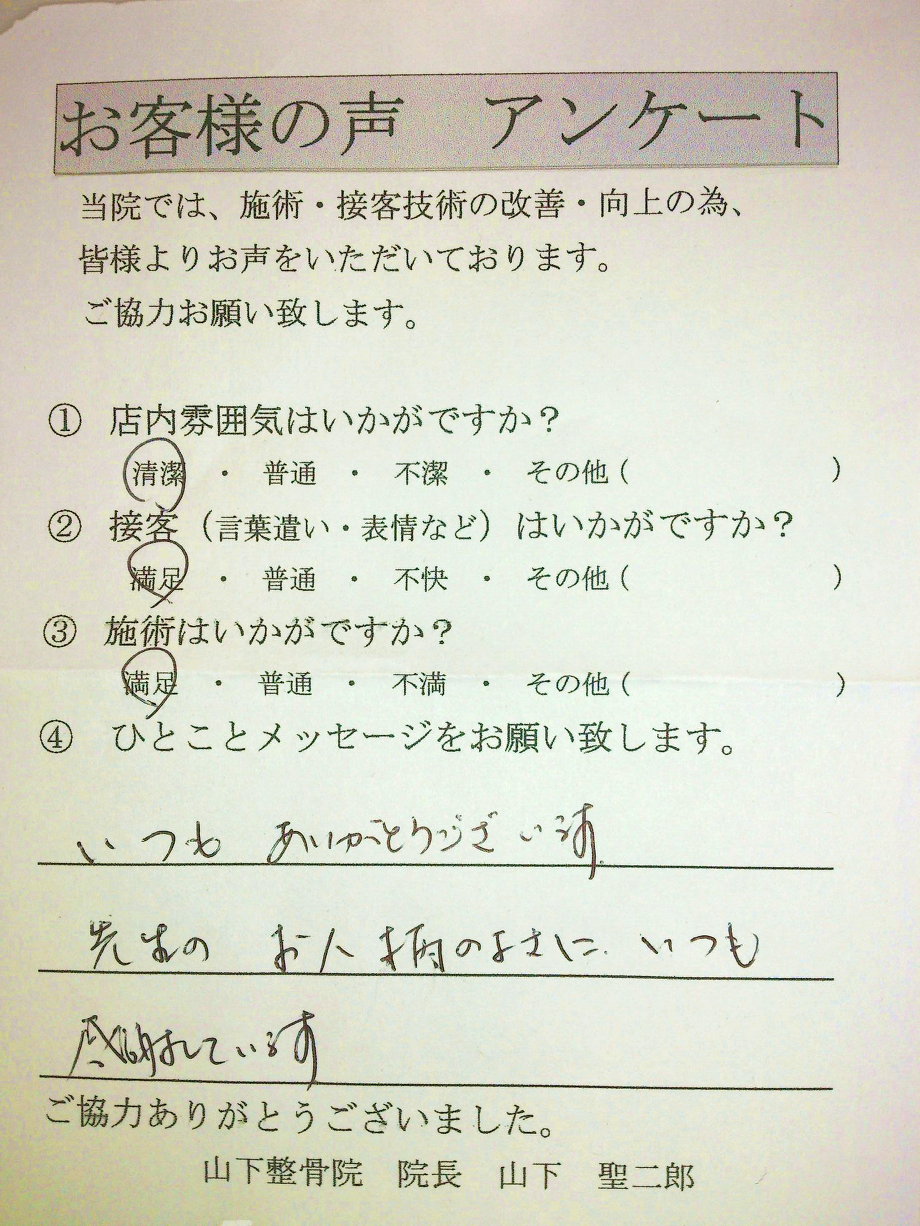 お客様の声　アンケート
当院では、施術・接客技術の改善・向上の為、
皆様よりお声をいただいております。
ご協力お願い致します。
① 店内雰囲気はいかがですか？
清潔 ・ 普通 ・ 不潔 ・ その他（　　　　　　）
② 接客（言葉遣い・表情など）はいかがですか？
満足 ・ 普通 ・ 不快 ・ その他（　　　　　　）
③ 施術はいかがですか？
満足 ・ 普通 ・ 不満 ・ その他（　　　　　　）
④ ひとことメッセージをお願い致します。
いつも ありがとうございます
先生の お人柄のよさに いつも
感謝しています
ご協力ありがとうございました。
山下整骨院　院長　山下　聖二郎